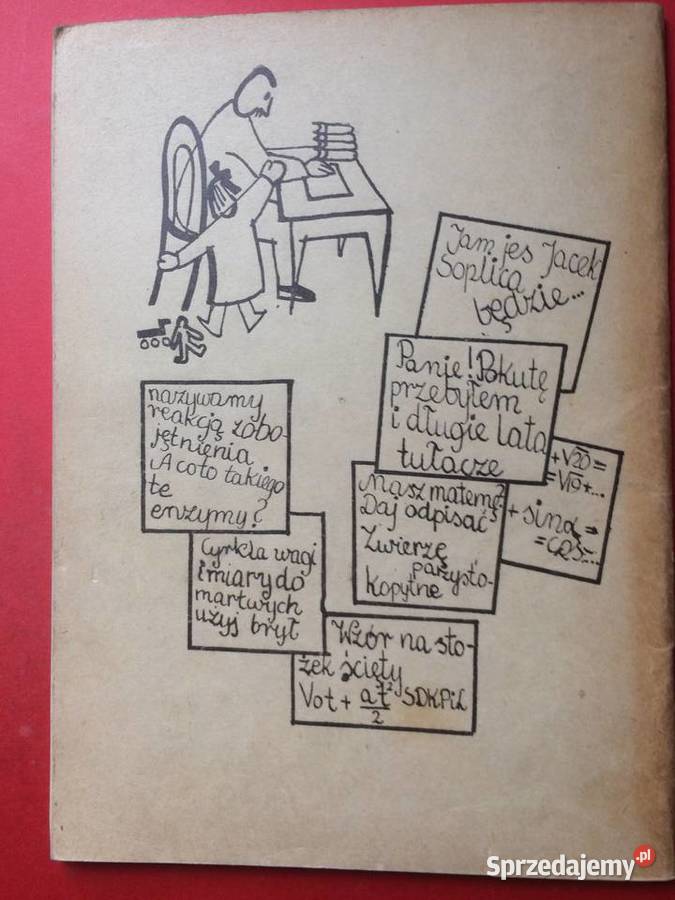 Jam jes Jacek
Soplica
będzie...
Panie! Pokutę
przebyłem
i długie lata
tułacze
nazywamy
reakcją zobo-
jętnienia
A co to takiego
te
enzymy?
+√20=
=√19+...
+ sinα =
= cos...
Masz matemę?
Daj odpisać
Zwierzę
parzysto-
kopytne
Cyrkla wagi
i miary do
martwych
użyj brył
Wzór na sto-
żek ścięty
Vot + at²/2 SDKPiL
Sprzedajemy.pl